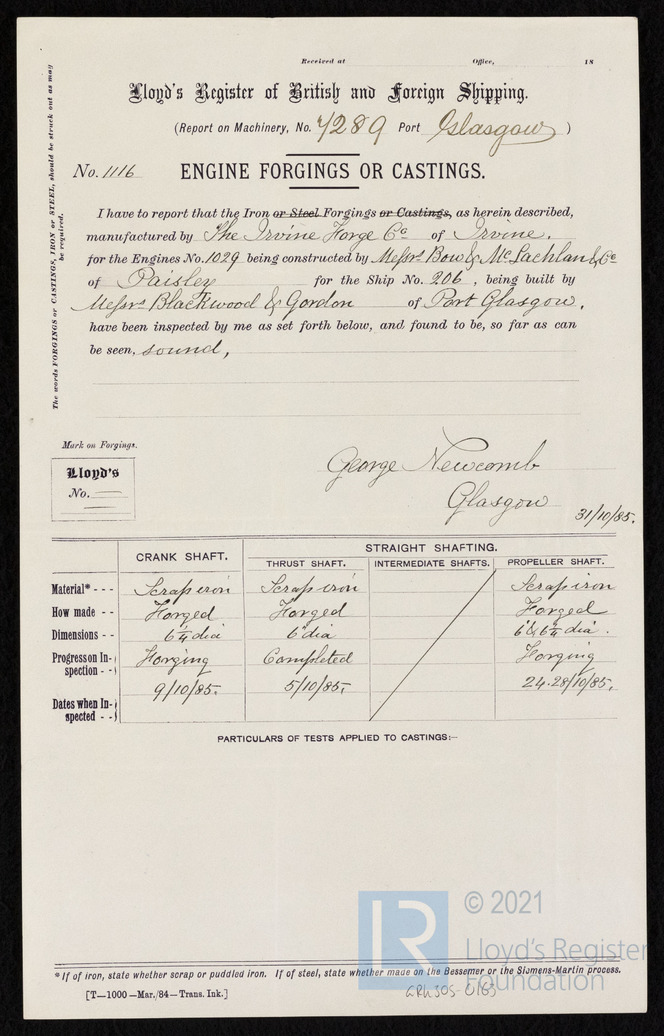 Received at Office, 18
Lloyd's Register of British and Foreign Shipping.
(Report on Machinery, No. 7289 Port Glasgow)
No. 1116 ENGINE FORGINGS OR CASTINGS.
The words FORGINGS or CASTINGS, IRON or STEEL, should be struck out as may
be required.
I have to report that the Iron or Steel Forgings or Castings, as herein described,
manufactured by The Irvine Forge Co of Irvine.
for the Engines No. 1029 being constructed by Messrs Bow & McLachlan & Co
of Paisley for the Ship No. 206, being built by
Messrs Blackwood & Gordon of Port Glasgow,
have been inspected by me as set forth below, and found to be, so far as can
be seen, sound,
Mark on Forgings.
Lloyd's
No.
George Newcomb
Glasgow 31/10/85.
CRANK SHAFT. STRAIGHT SHAFTING.
THRUST SHAFT. INTERMEDIATE SHAFTS. PROPELLER SHAFT.
Material* - - - Scrap iron Scrap iron Scrap iron
How made - - Forged Forged Forged
Dimensions - - 6¼ dia 6" dia 6" & 6¼ dia.
Progress on In- Forging Completed Forging
spection - -
9/10/85. 5/10/85. 24.28/10/85.
Dates when In-
spected - -
PARTICULARS OF TESTS APPLIED TO CASTINGS:—
© 2021
LR Lloyd's Register
Foundation
*If of iron, state whether scrap or puddled iron. If of steel, state whether made on the Bessemer or the Siemens-Martin process.
[T—1000—Mar./84—Trans. Ink.]